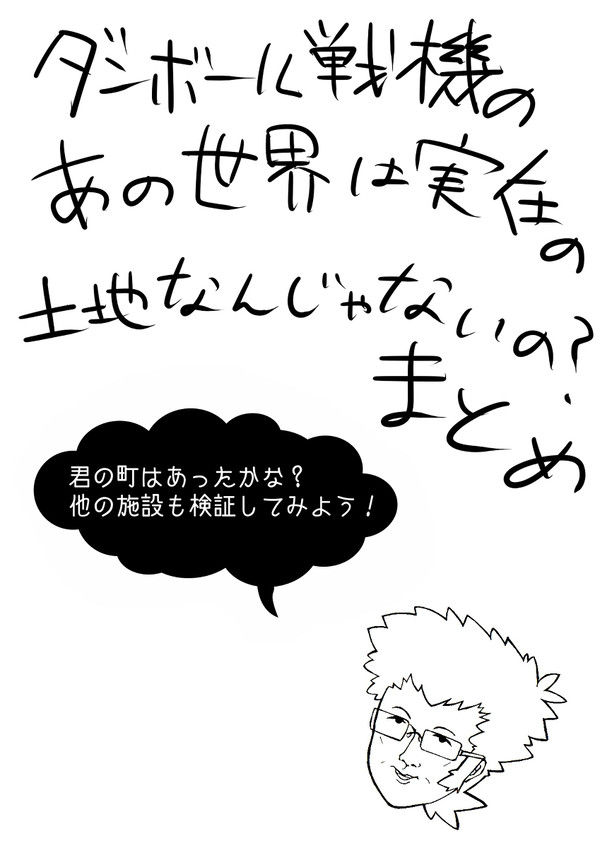 ダンボール戦機の
あの世界は実在の
土地なんじゃないの?
まとめ
君の町はあったかな?
他の施設も検証してみよう!